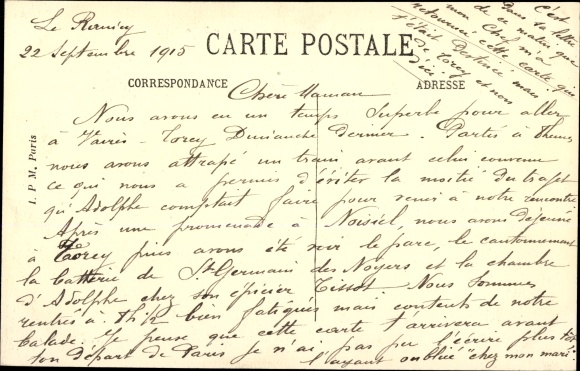 Le Rainey
22 Septembre 1915
CARTE POSTALE
CORRESPONDANCE
ADRESSE
I. P. M. Paris
C'est
dans ta lettre
de ce matin que
mon Cher m'a
retourné cette carte qui
t'était destinée mais
de Torcy et non
d'ici
Chère Maman
Nous avons eu un temps superbe pour aller
à Vaires-Torcy Dimanche dernier. Partis à
nous avons attrapé un train avant celui convenu
ce qui nous a permis d'éviter la moitié du trajet
qu'Adolphe comptait faire pour venir à notre rencontre
Après une promenade à Noisiel, nous avons déjeuné
à Torcy puis avons été voir le parc, le cantonnement
la batterie de St Germain des Noyers et la chambre
d'Adolphe chez son épicier Tissot Nous sommes
rentrés à bien fatigués mais contents de notre
balade. Je pense que cette carte t'arrivera avant
ton départ de Paris je n'ai pas pu l'écrire plus tôt
l'ayant oubliée "chez mon mari"